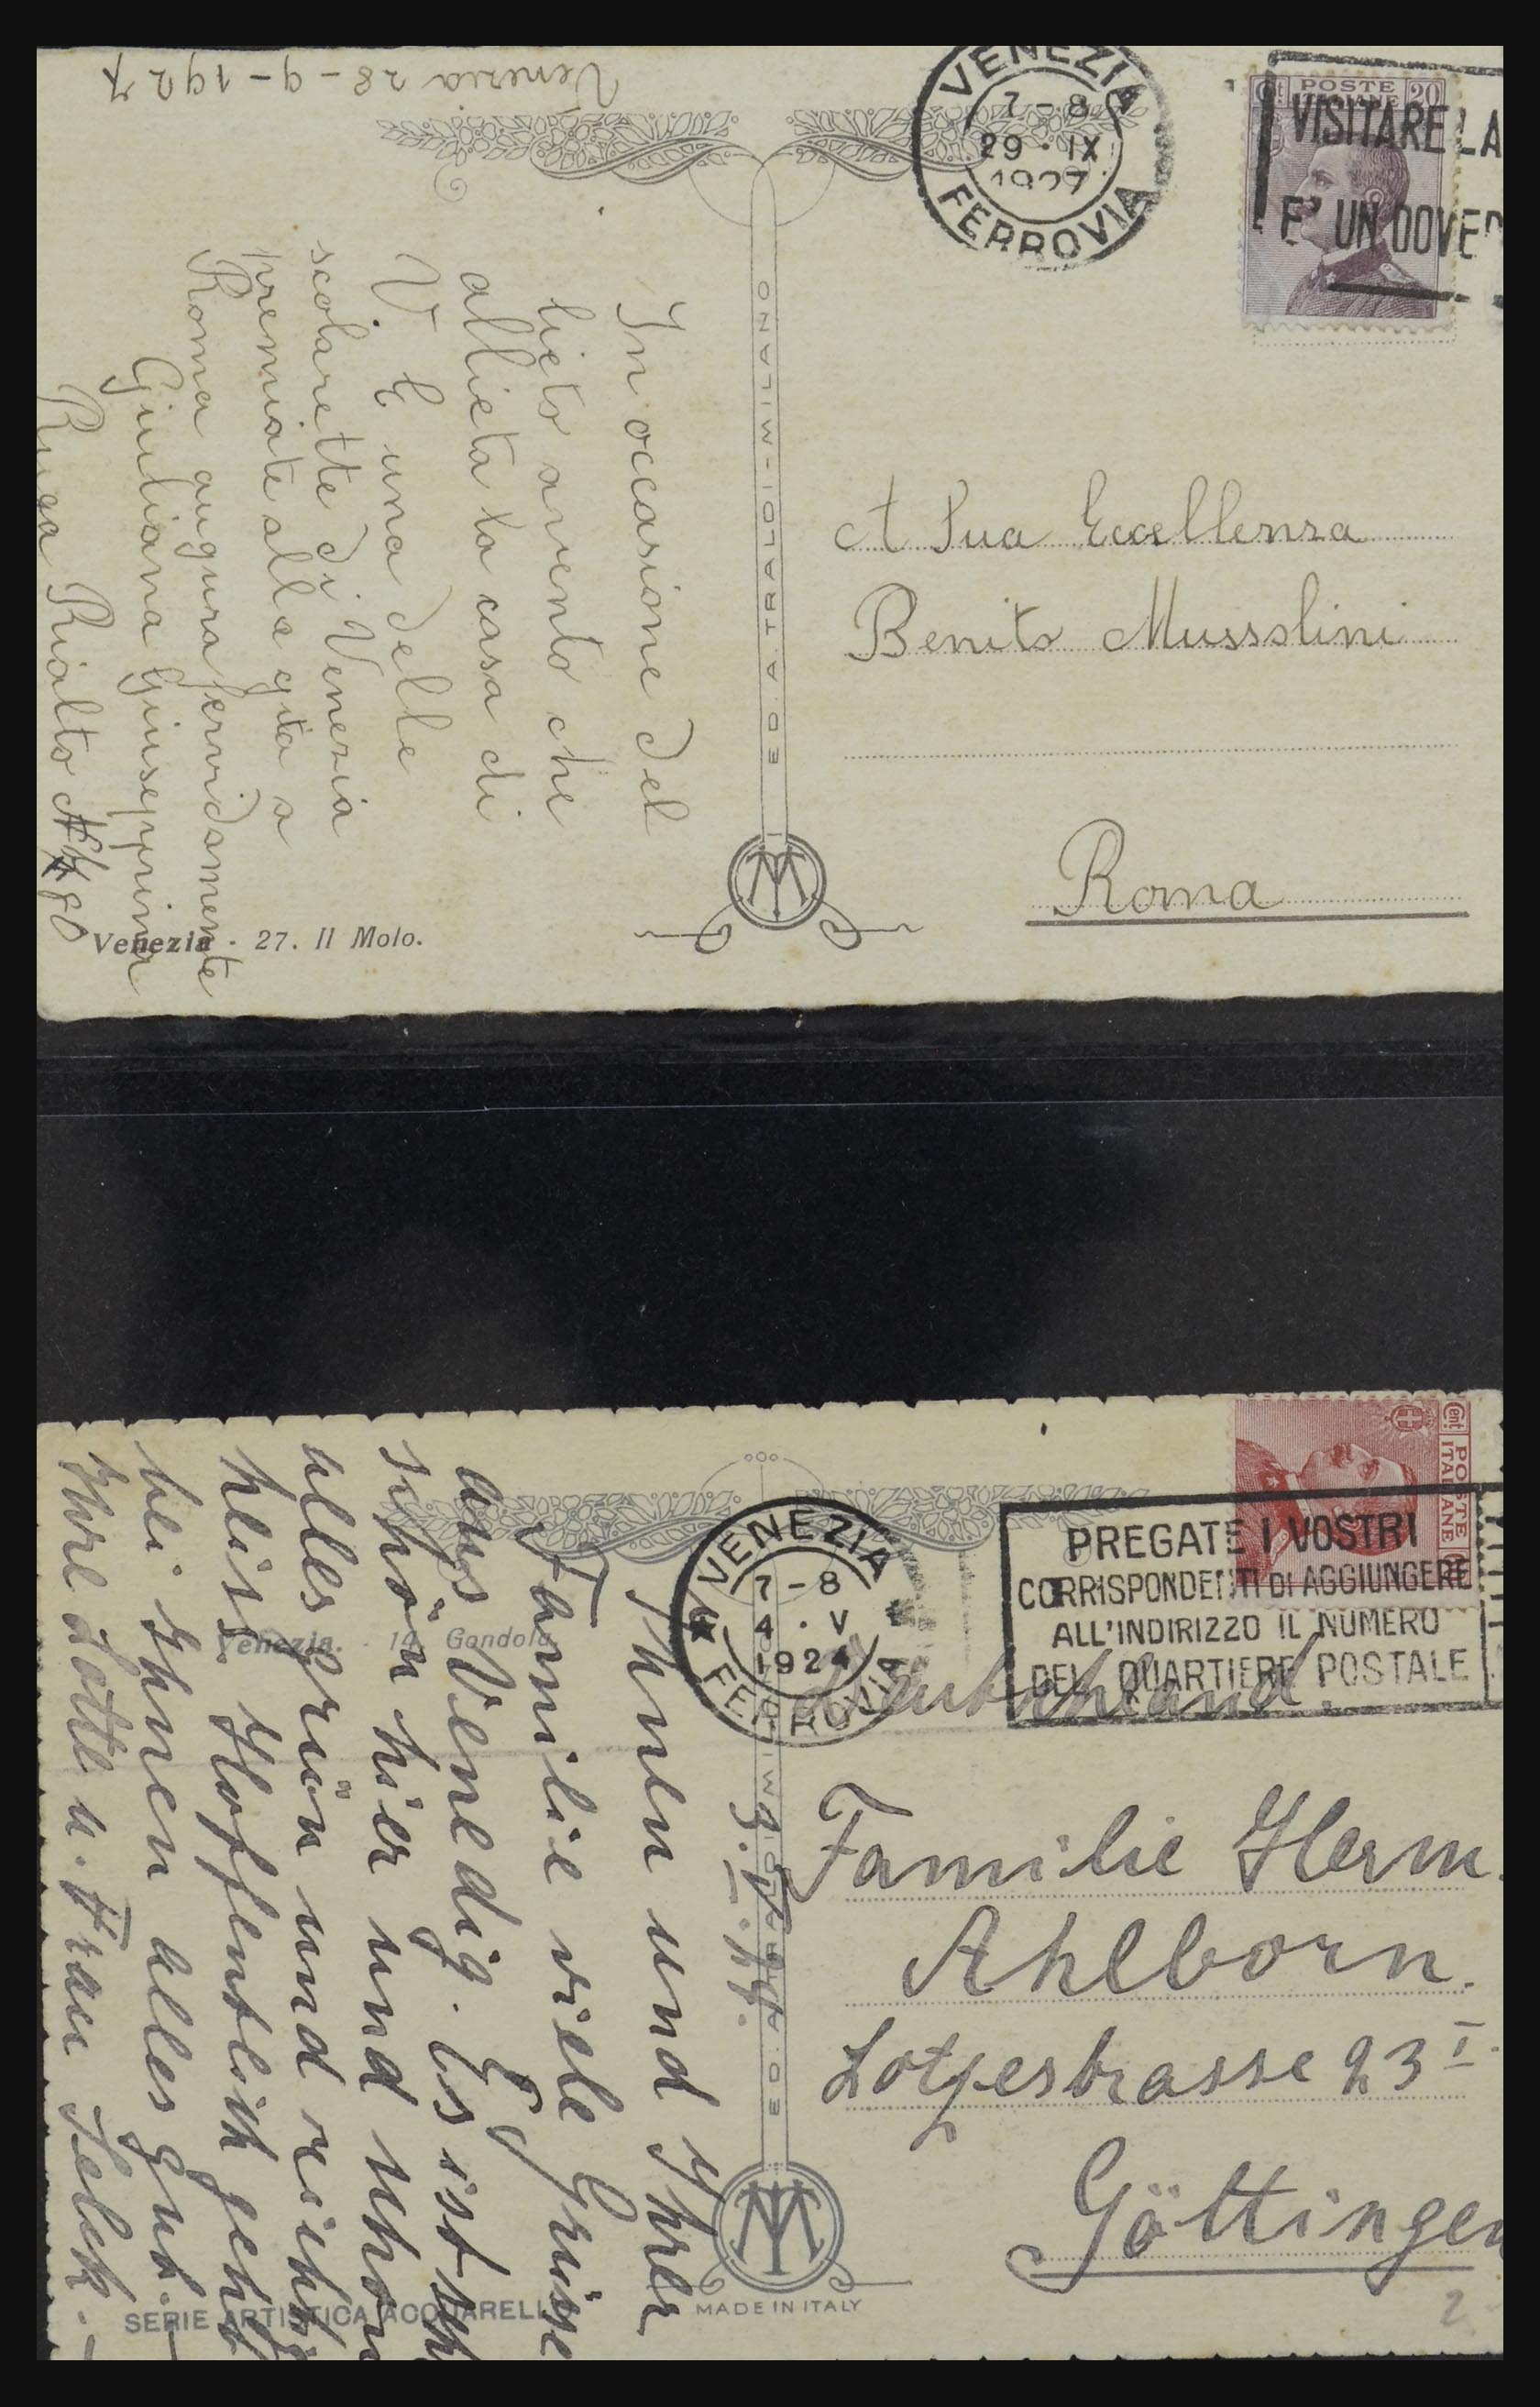 Venezia 28-9-1927
VENEZIA
7-8
29·IX
1927
FERROVIA
POSTE
20
VISITARE LA
E' UN DOVER
In occasione del
lieto avvento che
allieta la casa di
V. E una delle
scolarette di Venezia
premiate alla gita a
Roma augura fervidamente
Giuliana Giuseppina
Rialto
80
ED. A. TRALDI - MILANO
A Sua Eccellenza
Benito Mussolini
Roma
Venezia · 27. Il Molo.
POSTE
ITALIANE
Cent
VENEZIA
7-8
4·V
1924
FERROVIA
PREGATE I VOSTRI
CORRISPONDENTI DI AGGIUNGERE
ALL'INDIRIZZO IL NUMERO
DEL QUARTIERE POSTALE
Ihnen und Ihrer
Familie viele Grüsse
aus Venedig. Es ist sch
schön hier und schon
alles grün und richtig
heiss. Hoffentlich geht
bei Ihnen alles gut.
Ihre Lotte u. Frau
Venezia. - 14. Gondola
Deutschland.
Familie Herm.
Ahlborn.
Lotzestrasse 23 I.
Göttingen
SERIE ARTISTICA ACQUARELL
MADE IN ITALY
2